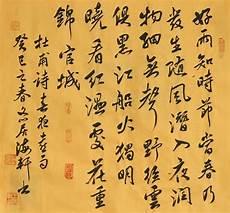 好雨知時節當春乃
發生隨風潛入夜潤
物細無聲野徑雲
俱黑江船火獨明
曉看紅濕處花重
錦官城
杜甫詩
癸巳之春